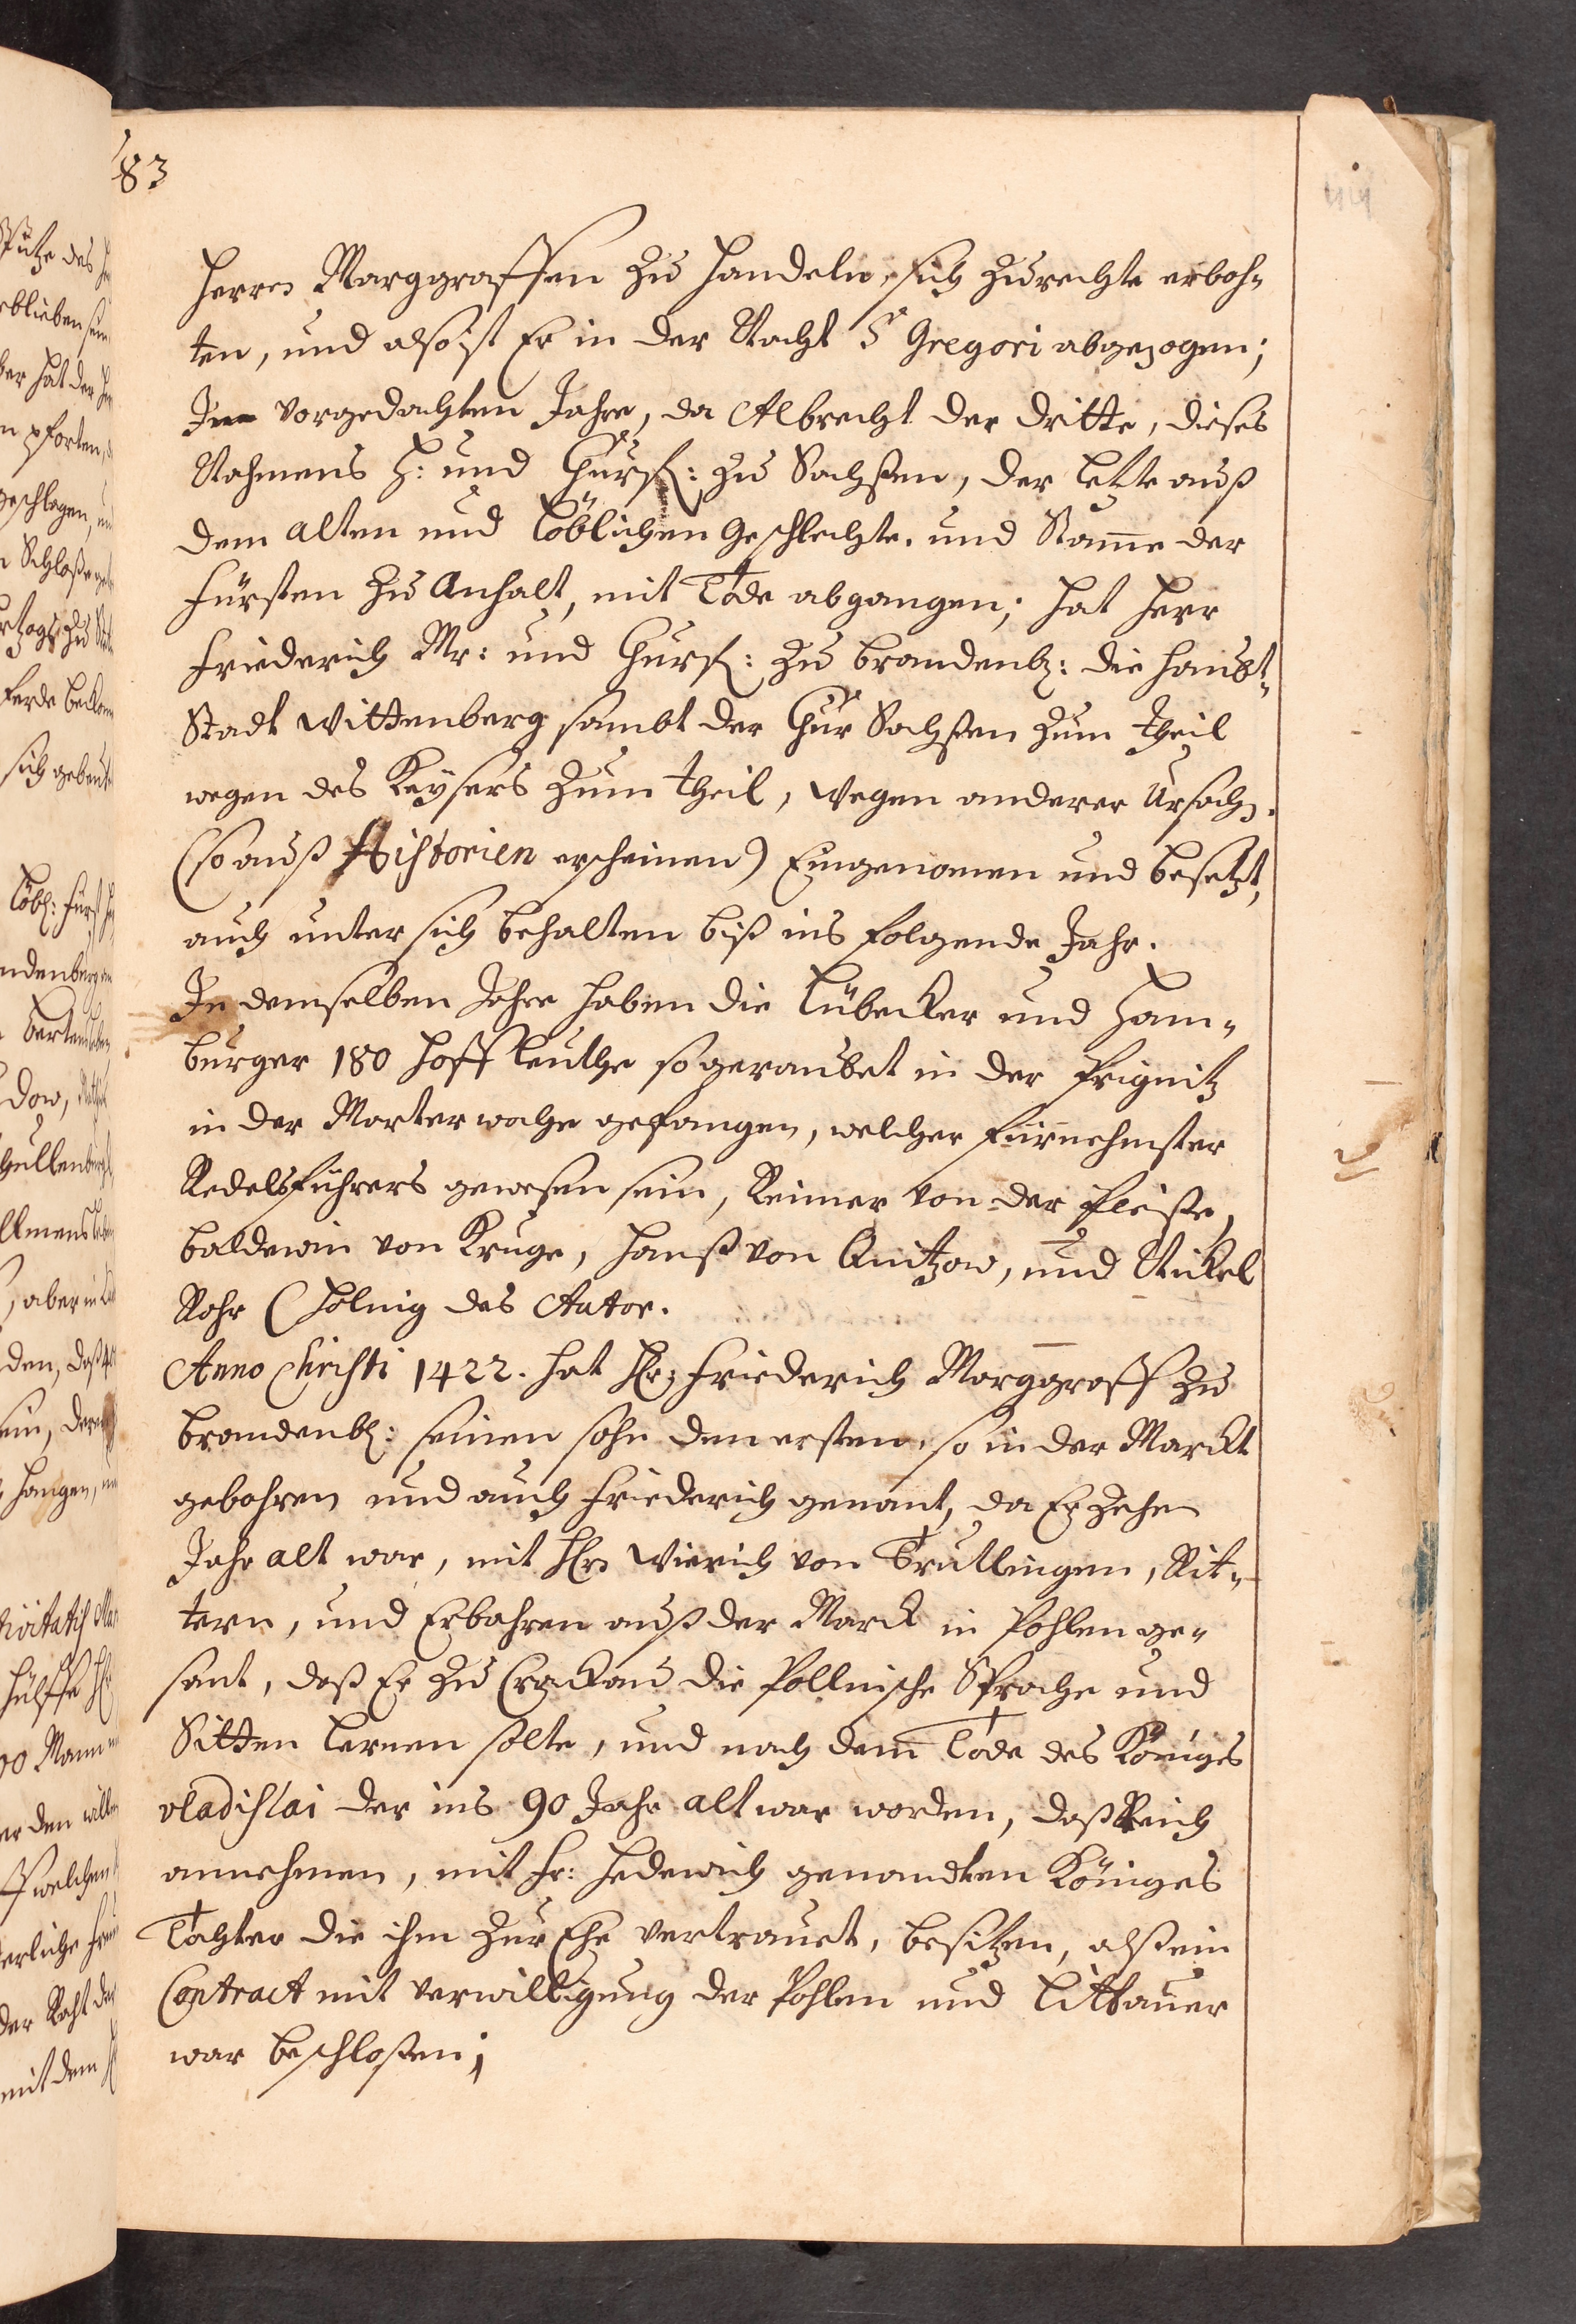 83
Herren Marggraffen zu handeln, sich zurechte erboh-
ten, und also ist Er in der Nacht S Gregori abgezogen;
Im vorgedachten Jahre, da Albrecht der dritte, dieses
Nahmens H: und Churf: zu Sachßen, der letzte auß
dem alten und löblichen Geschlechte, und Stamme der
Fürsten zu Anhalt, mit Tode abgangen; hat Herr
Friederich Mr: und Churf: zu Brandenb: die Haubt-
Stadt Wittenberg sambt der Chur Sachßen zum theil
wegen des Keysers zum theil, wegen anderer Ursach.
(so auß Historien erscheinen) Eingenommen und besetzt,
auch unter sich behalten biß ins folgende Jahr.
In demselben Jahre haben die Lübecker und Ham-
burger 180 Hoff leuthe so geraubet in der Prignitz
in der Marterwoche gefangen, welcher fürnehmster
Redelsführers gewesen sein, Reimer von der Pleiße,
Baldewin von Kruge, Hanß von Quitzow, und Nickel
Rohr (Holnig das Autor.
Anno Christi 1422. hat Hr: Friederich Marggraff zu
Brandenb: seinen sohn den ersten, so in der Marckt
gebohren und auch Friederich genant, da Er zehen
Jahr alt war, mit Hrn Wierich von Trutlingen, Rit-
tern, und Erbahren auß der Marck in Pohlen ge-
sant, daß Er zu Crackau die Pollnische Sprache und
Sitten lernen solte, und nach dem Tode des Königes
vladislai der ins 90 Jahr alt war worden, daß Reich
annehmen, mit Fr: Hedewich genandten Königes
Tochter die ihm zur Ehe vertrauet, besitzen, alß ein
Contract mit verwilligung der Pohlen und Littauer
war beschloßen;